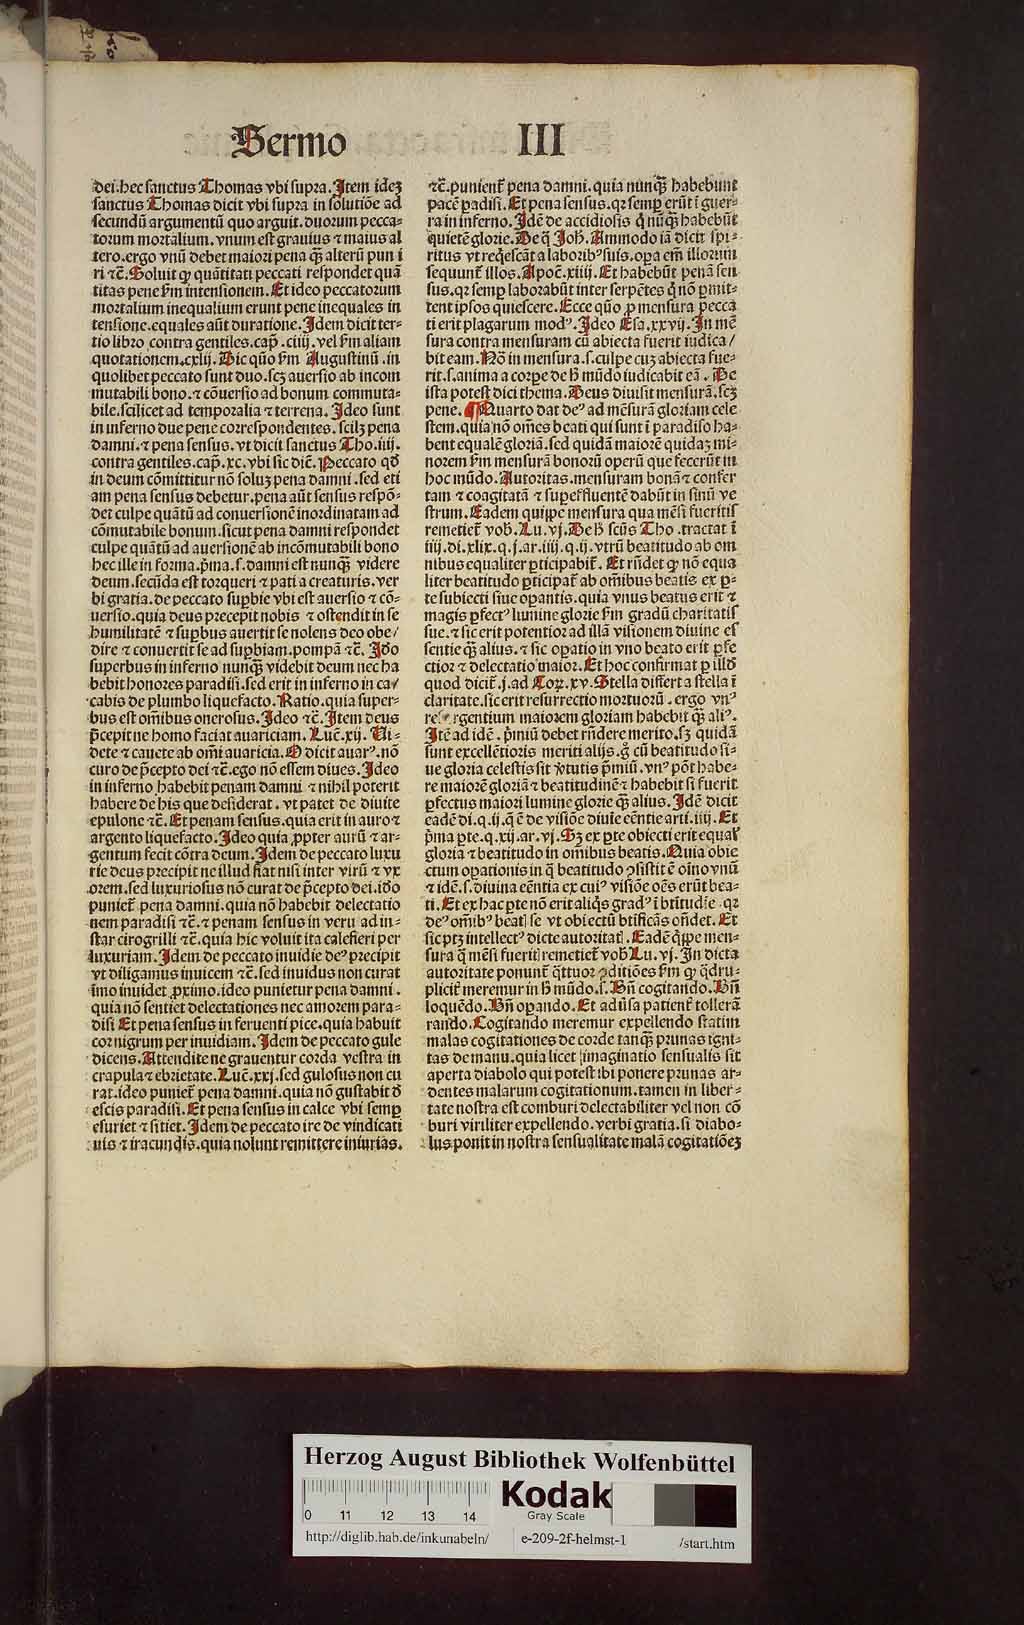 Sermo III
dei.hec sanctus Thomas vbi supra.Item idez
sanctus Thomas dicit vbi supra in solutiōe ad
secundū argumentū quo arguit.duorum pecca-
torum mortalium.vnum est grauius ⁊ maius al
tero.ergo vnū debet maiori pena qꝫ̄ alterū pun i
ri ⁊c̄.Soluit ꝙ quātitati peccati respōdet quā
titas pene ẜm intensionem.Et ideo peccatorum
mortalium inequalium erunt pene inequales in
tensione.equales aūt duratione.Idem dicit ter-
tio libro contra gentiles.cap̄.ciiij.vel ẜm aliam
quotationem.cxlij.Hic quo ẜm Augustinū.in
quolibet peccato sunt duo.scꝫ auersio ab incom
mutabili bono.⁊ cōuersio ad bonum commuta-
bile.scilicet ad temporalia ⁊ terrena.Ideo sunt
in inferno due pene correspondentes.scilꝫ pena
damni.⁊ pena sensus.vt dicit sanctus Tho.iiij.
contra gentiles.cap̄.xc.vbi sic dic̄.Peccato qđ
in deum cōmittitur nō soluꝫ pena damni.sed eti
am pena sensus debetur.pena aūt sensus respō-
det culpe quātū ad conuersionē inordinatam ad
cōmutabile bonum.sicut pena damni respondet
culpe quātū ad auersionē ab incōmutabili bono
hec ille in forma.p̄ma.s.damni est nunqꝫ̄ videre
deum.secūda est torqueri ⁊ pati a creaturis.ver
bi gratia.de peccato suꝑbie vbi est auersio ⁊ cō-
uersio.quia deus precepit nobis ⁊ ostendit in se
humilitatē ⁊ suꝑbus auertit se nolens deo obe/
dire ⁊ conuertit se ad suꝑbiam.pompā ⁊c̄.Iđo
superbus in inferno nunqꝫ̄ videbit deum nec ha
bebit honores paradisi.sed erit in inferno in ca/
cabis de plumbo liquefacto.Ratio.quia super-
bus est om̄ibus onerosus.Ideo ⁊c̄.Item deus
p̄cepit ne homo faciat auariciam.Luc̄.xij.Vi-
dete ⁊ cauete ab om̄i auaricia.O dicit auarꝰ.nō
curo de p̄cepto dei ⁊c̄.ego nō essem diues.Ideo
in inferno habebit penam damni ⁊ nihil poterit
habere de his que desiderat.vt patet de diuite
epulone ⁊c̄.Et penam sensus.quia erit in auro ⁊
argento liquefacto.Ideo quia ꝓpter aurū ⁊ ar-
gentum fecit cōtra deum.Idem de peccato luxu
rie deus precipit ne illud fiat nisi inter virū ⁊ vx
orem.sed luxuriosus nō curat de p̄cepto dei.iđo
punieƫ pena damni.quia nō habebit delectatio
nem paradisi ⁊c̄.⁊ penam sensus in veru ad in-
star cirogrilli ⁊c̄.quia hic voluit ita calefieri per
luxuriam.Idem de peccato inuidie deꝰ precipit
vt diligamus inuicem ⁊c̄.sed inuidus non curat
īmo inuidet ꝓximo.ideo punietur pena damni.
quia nō sentiet delectationes nec amorem para-
disi Et pena sensus in feruenti pice.quia habuit
cor nigrum per inuidiam.Idem de peccato gule
dicens.Attendite ne grauentur corda vestra in
crapula ⁊ ebrietate.Luc̄.xxj.sed gulosus non cu
rat.ideo punieƫ pena damni.quia nō gustabit đ
escis paradisi.Et pena sensus in calce vbi semꝑ
esuriet ⁊ sitiet.Idem de peccato ire de vindicati
uis ⁊ iracundis.quia nolunt remittere iniurias.
⁊c̄.punienƫ pena damni.quia nunqꝫ̄ habebunt
pacē ꝑadisi.Et pena sensus.qꝛ semꝑ erūt ī guer-
ra in inferno.Idē de accidiosis q̇ nūqꝫ̄ habebūt
quietē glorie.De q̄ Joh̄.Ammodo iā dicit spi-
ritus vt reqͥescāt a laboribꝰ suis.oꝑa em̄ illorum
sequunƫ illos.Apoc̄.xiiij.Et habebūt penā sen
sus.qꝛ semꝑ laborabūt inter serpētes q̇ nō ꝑmit-
tent ipsos quiescere.Ecce quo ꝓ mensura pecca
ti erit plagarum modꝰ.Ideo Esa.xxvij.In mē
sura contra mensuram cū abiecta fuerit iudica/
bit eam.Nō in mensura.s.culpe cuꝫ abiecta fue-
rit.s.anima a corꝑe de ħ mūdo iudicabit eā.De
ista potest dici thema.Deus diuisit mensurā.scꝫ
pene.¶Quarto dat deꝰ ad mēsurā gloriam cele
stem.quia nō om̄es beati qui sunt ī paradiso ha-
bent equalē gloriā.sed quidā maiorē quidaꝫ mi-
norem ẜm mensurā bonorū operū que fecerūt in
hoc mūdo.Autoritas.mensuram bonā ⁊ confer
tam ⁊ coagitatā ⁊ suꝑeffluentē dabūt in sinū ve
strum.Eadem quippe mensura qua mēsi fueritis
remetieƫ vob̄.Lu.vj.De ħ scūs Tho.tractat ī
iiij.di.xlix.q.j.ar.iiij.q.ij.vtrū beatitudo ab om
nibus equaliter ꝑticipabiƫ.Et rn̄det ꝙ nō equa
liter beatitudo ꝑticipaƫ ab om̄ibus beatis ex ꝑ-
te subiecti siue oꝑantis.quia vnus beatus erit ⁊
magis ꝑfectꝰ lumine glorie ẜm gradū charitatis
sue.⁊ sic erit potentior ad illā visionem diuine es
sentie qꝫ̄ alius.⁊ sic oꝑatio in vno beato erit ꝑfe
ctior ⁊ delectatio maior.Et hoc confirmat ꝑ illđ
quod diciƫ.j.ad Coꝝ.xv.Stella differt a stella ī
claritate.sic erit resurrectio mortuorū.ergo vnꝰ
resurgentium maiorem gloriam habebit qꝫ̄ aliꝰ.
Itē ad idē.p̄miū debet rn̄dere merito.sꝫ quidā
sunt excellētioris meriti alijs.g̊ cū beatitudo si-
ue gloria celestis sit v̾tutis p̄miū.vnꝰ pōt habe-
re maiorē gloriā ⁊ beatitudinē ⁊ habebit si fuerit
ꝑfectus maiori lumine glorie qꝫ̄ alius.Idē dicit
eadē di.q.ij.q ē de visiōe diuīe eēntie arti.iiij.Et
p̄ma ꝑte.q.xij.ar.vj.Sꝫ ex ꝑte obiecti erit equal̓
gloria ⁊ beatitudo in omībus beatis.Quia obie
ctum oꝑationis in q̄ beatitudo ꝯsistit ē oīno vnū
⁊ idē.s.diuina eēntia ex cuiꝰ visiōe oēs erūt bea-
ti.Et ex hac ꝑte nō erit aliqͥs gradꝰ ī btītudīe.qꝛ
deꝰ om̄ibꝰ beatis se vt obiectū btificās on̄det.Et
sic ptꝫ intellectꝰ dicte autoritatis.Eadē qͥppe men-
sura q̄ mēsi fueritis remetieƫ vob̄ Lu.vj.In dicta
autoritate ponunƫ qͣttuor ꝯditiōes ẜm ꝙ qͣdru-
pliciƫ meremur in ħ mūdo.s.Bn̄ cogitando.Bn̄
loquēdo.Bn̄ oꝑando.Et aduersa patienƫ tollerā
rando.Cogitando meremur expellendo statim
malas cogitationes de corde tanqꝫ̄ prunas igni-
tas de manu.quia licet imaginatio sensualis sit
aperta diabolo qui potest ibi ponere prunas ar-
dentes malarum cogitationum.tamen in liber-
tate nostra est comburi delectabiliter vel non cō
buri viriliter expellendo.verbi gratia.si diabo-
lus ponit in nostra sensualitate malā cogitatiōeꝫ
Herzog August Bibliothek Wolfenbüttel
Kodak
Gray Scale
0 11 12 13 14
http://diglib.hab.de/inkunabeln/ e-209-2f-helmst-1 /start.htm